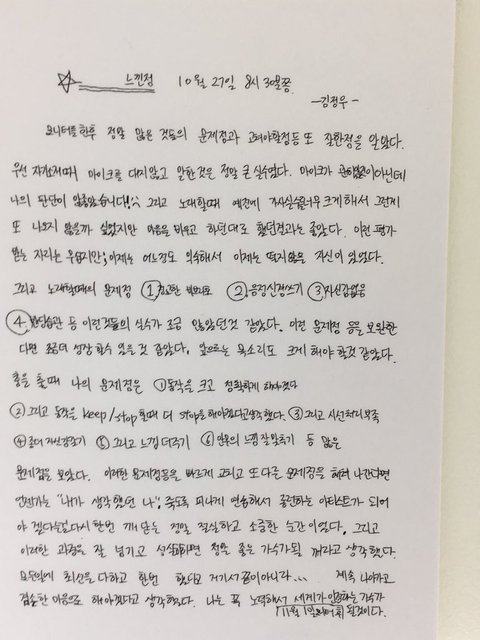 느낀점 10월 27일 8시 30분쯤
-김정우-
모니터를 한후 정말 많은 것들의 문제점과 고쳐야할점등 또 잘한점을 알았다.
우선 자기소개때 마이크를 대지않고 말한것은 정말 큰 실수였다. 마이크가 아닌데
나의 판단이 안좋았습니다!;; 그리고 노래할때 예전에 가사실수를너무 크게해서 그런게
또 나오지 않을까 싶었지만 마음을 비우고 하던대로 했던것과는 좋았다. 이런 평가
받는 자리는 무섭지만, 이제는 어느정도 익숙해서 이제는 떨지않을 자신이 있었다.
그리고 노래할때의 문제점 ① ② 음정신경쓰기 ③ 자신감없음
④ 습관 등 이런것들의 실수가 조금 많았던것 같았다. 이런 문제점 등을 보완한
다면 조금더 성장할수 있을것 같았다. 앞으로는 목소리도 크게 해야 할것 같았다.
춤을 출때 나의 문제점은 ① 동작을 크고 정확하게 해야겠다
② 그리고 동작을 keep/stop 할때 더 stop을 해야겠다고생각했다. ③ 그리고 시선처리 부족
④ 좀더 자신감갖기 ⑤ 그리고 느낌 더주기 ⑥ 안무의 느낌 잘맞추기 등 많은
문제점을 보았다. 이러한 문제점들을 빠르게 고치고 또다른 문제점을 헤쳐 나간다면
언젠가는 "내가 생각했던 나", 죽도록 피나게 연습해서 공연하는 아티스트가 되어
야 겠다는걸 다시한번 깨닫는 정말 절실하고 소중한 순간이었다. 그리고
이러한 과정을 잘 넘기고 성실하면 정말 좋은 가수가될 꺼라고 생각했다.
모든일에 최선을 다하고 한번 했다고 거기서 끝이아니라... 계속 나아가고
겸손한 마음으로 해야겠다고 생각했다. 나는 꼭 노력해서 세계가 인정하는 가수가
11월 1일 될것이다.